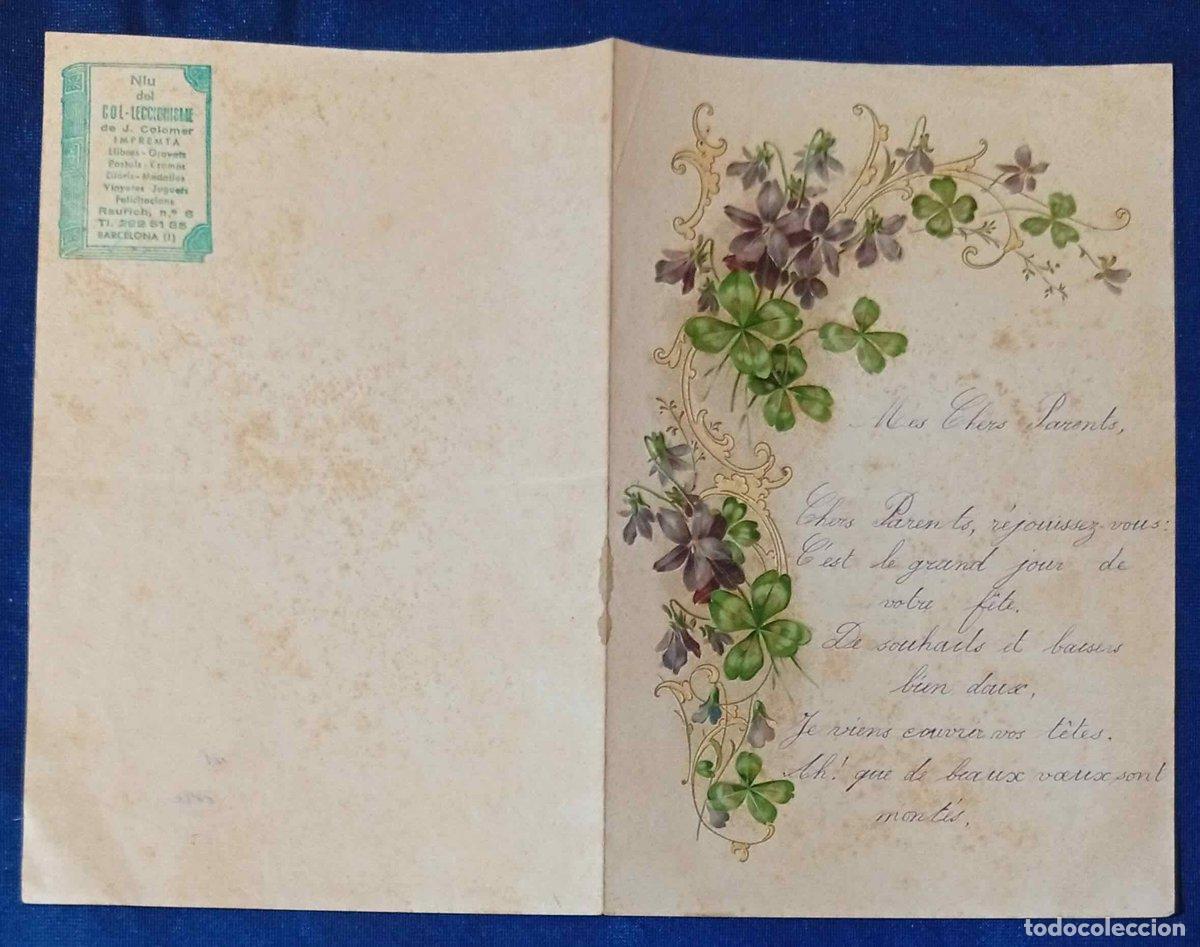 Niu
del
COL·LECCIONISME
de J. Colomer
IMPREMTA
Llibres - Gravats
Postals - Cromos
Exlibris - Medalles
Vinyetes Joguets
Felicitacions
Raurich, n.º 6
Tl. 222 51 85
BARCELONA (1)
Mes Chers Parents,
Chers Parents, réjouissez-vous:
C'est le grand jour de
votre fête.
De souhaits et baisers
bien doux,
Je viens couvrir vos têtes.
Ah! que de beaux vœux sont
montés,
todocoleccion